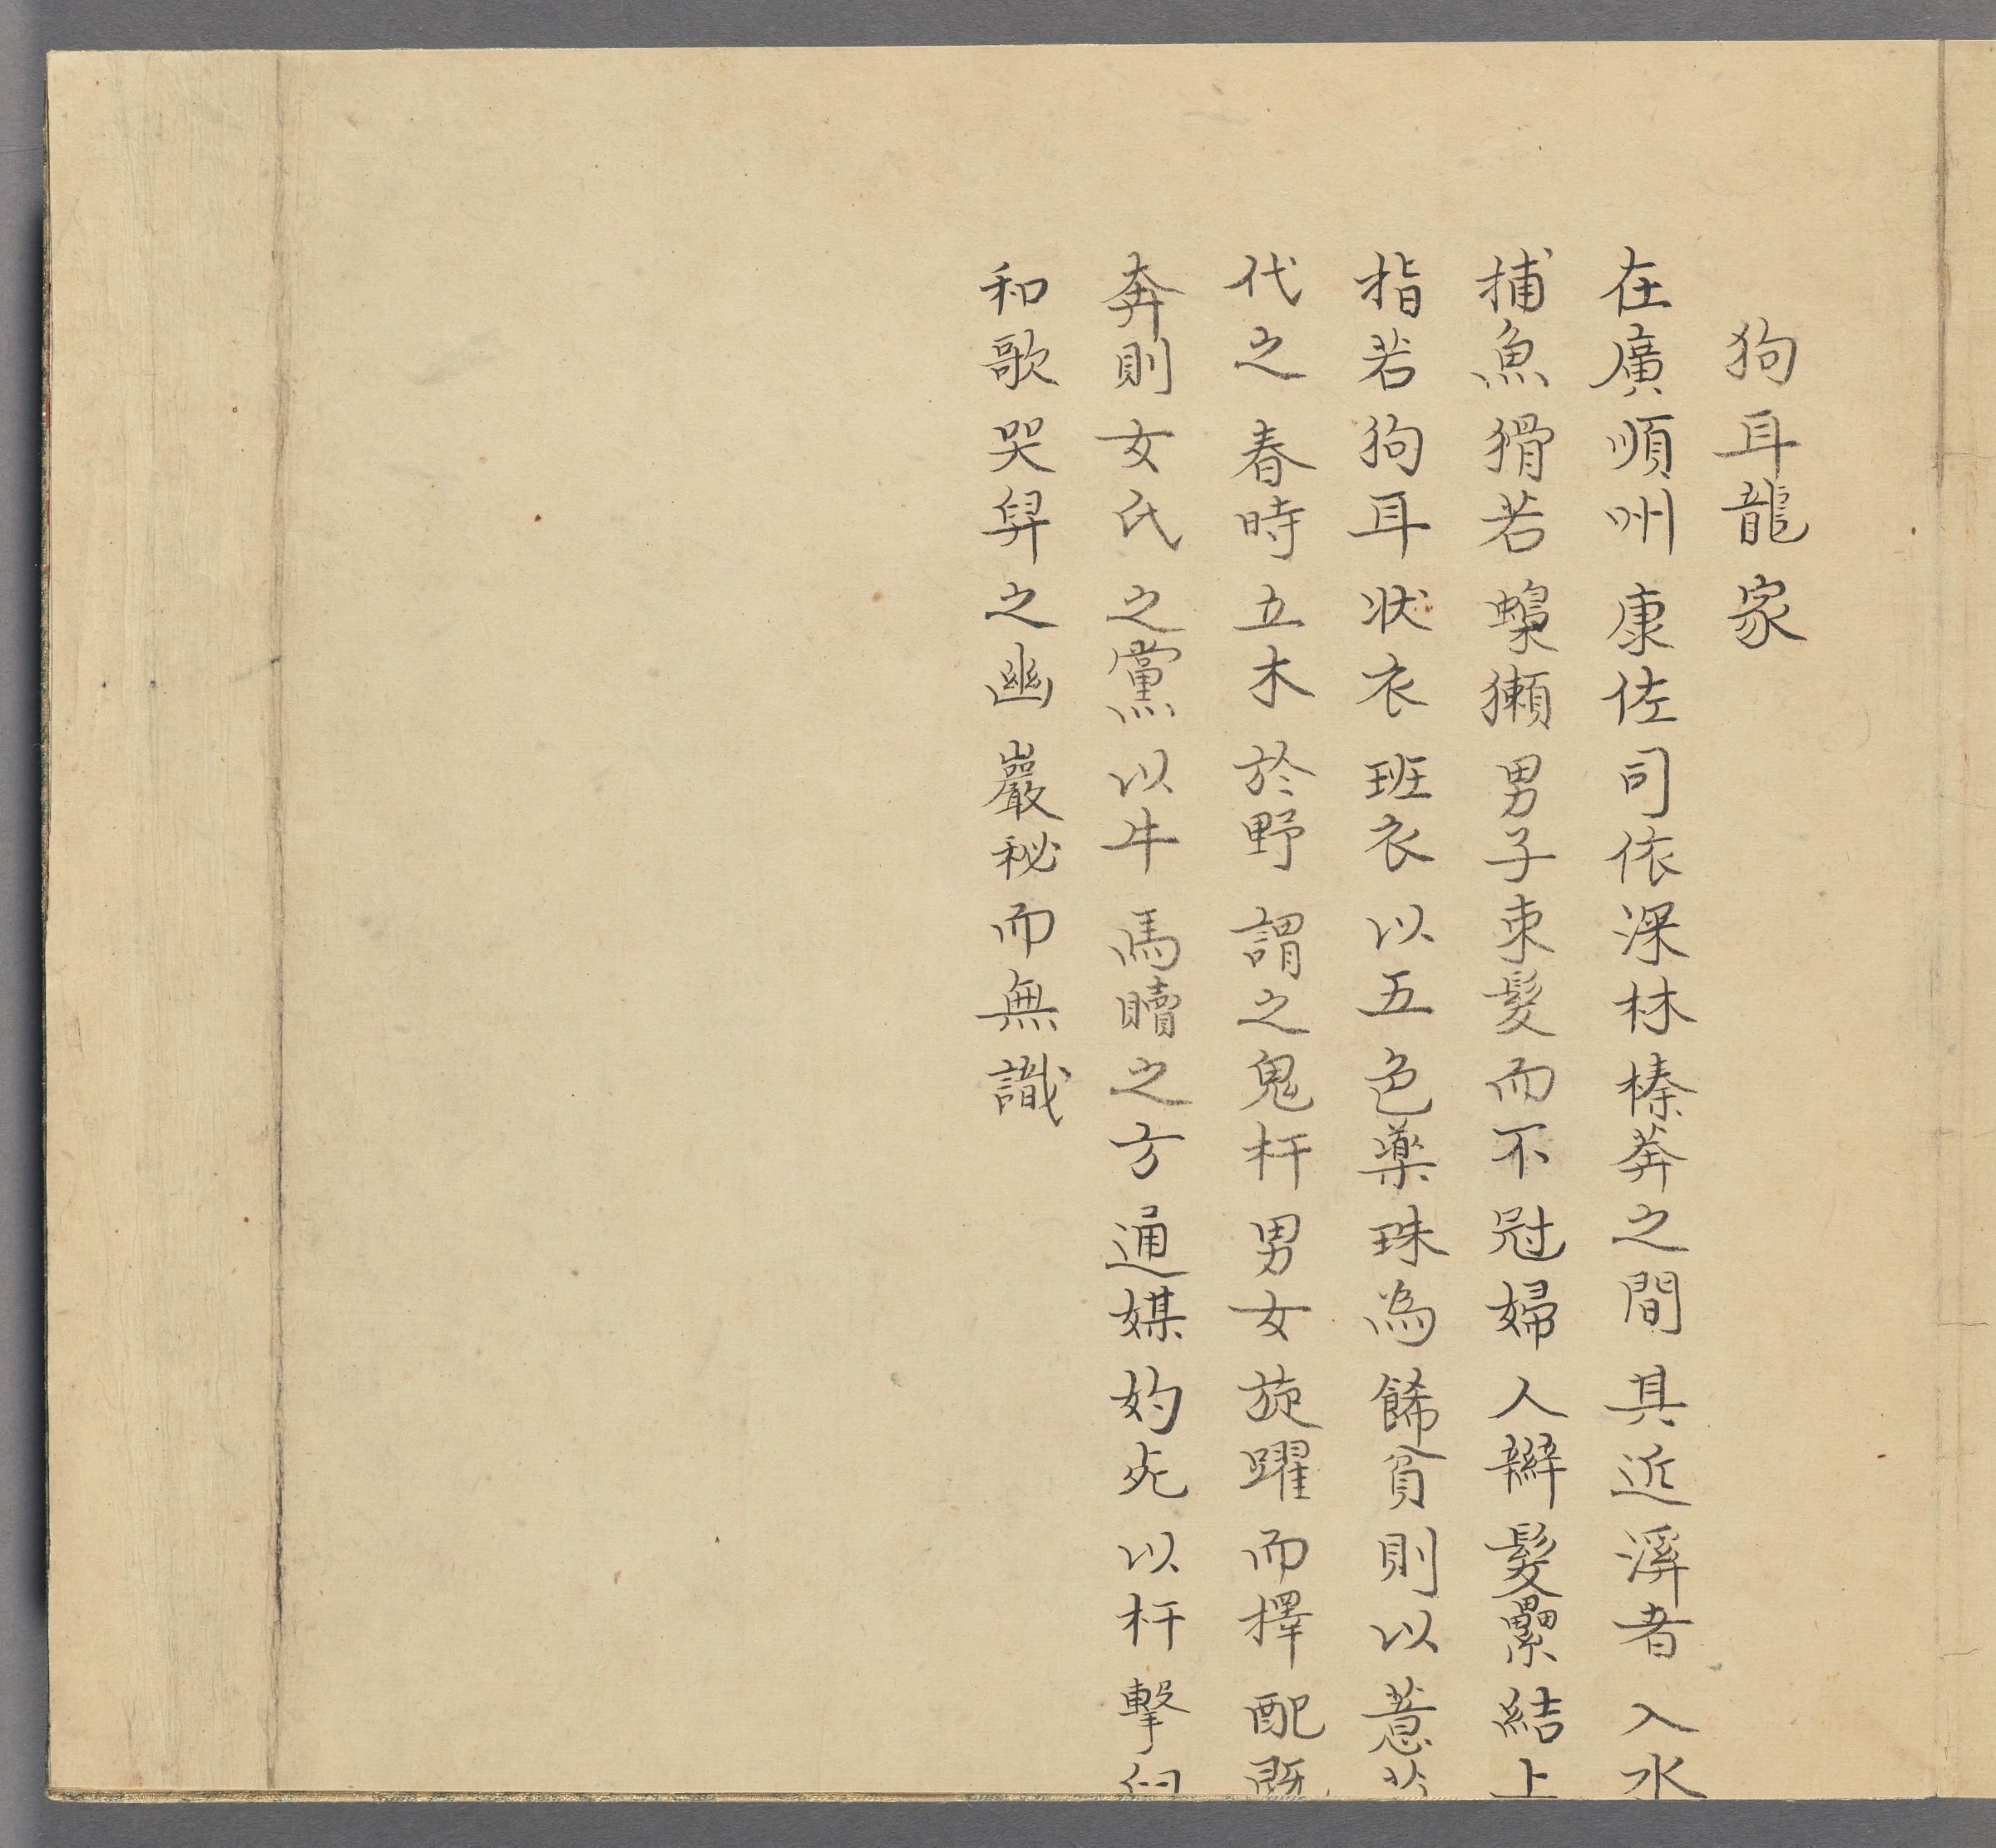 狗耳龍家
在廣順州康佐司依深林榛莽之間其近溪者入水
捕魚猾若獱獺男子束髮而不冠婦人辮髮纍結上
指若狗耳狀衣班衣以五色藥珠為餙貧則以薏
代之春時立木於野謂之鬼杆男女旋躍而擇配既
奔則女氏之黨以牛馬贖之方通媒妁死以杆擊臼
和歌哭舁之幽巖秘而無識